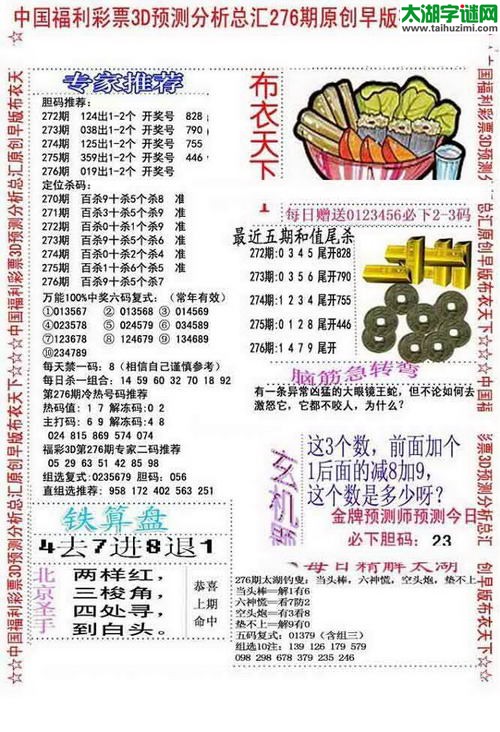 太湖字谜网
www.taihuzimi.com
中国福利彩票3D预测分析总汇276期原创早版
专家推荐
胆码推荐:
272期 124出1-2个 开奖号 828
273期 038出1-2个 开奖号 790
274期 125出1-2个 开奖号 755
275期 359出1-2个 开奖号 446
276期 019出1-2个 开奖号
定位杀码:
270期 百杀9十杀5个杀8 准
271期 百杀3十杀6个杀9 准
272期 百杀0十杀1个杀9 准
273期 百杀6十杀4个杀9 准
274期 百杀0十杀1个杀9 准
275期 百杀1十杀6个杀5 准
276期 百杀9十杀5个杀7
万能100%中奖六码复式: (常年有效)
①013567 ②013568 ③014569
④023578 ⑤024579 ⑥034586
⑦123678 ⑧124679 ⑨134689
⑩234789
每天禁一码: 8 (相信自己谨慎参考)
每日杀一组合: 14 59 60 32 70 18 92
第276期冷热号码推荐
热码值: 1 7 解冻码: 0 2
主打码: 6 9 解冻码: 4 8
024 815 869 574 074
福彩3D第276期专家二码推荐
05 29 63 51 42 85 98
组选复式: 0235679 胆码: 056
直组选推荐: 958 172 402 563 251
铁算盘
4去7进8退1
北京圣手
两样红,
三梭角,
四处寻,
到白头。
恭喜
上期
命中
布衣天下
每日赠送0123456必下2-3码
最近五期和值尾杀
272期: 0 3 4 5 尾开828
273期: 0 3 5 6 尾开790
274期: 1 2 3 4 尾开755
275期: 0 1 2 8 尾开446
276期: 1 4 7 9 尾开
脑筋急转弯
有一条异常凶猛的大眼镜王蛇,但不论如何去
激怒它,它都不咬人,为什么?
玄机
这3个数,前面加个
1后面的减8加9,
这个数是多少呀?
金牌预测师预测今日
必下胆码: 23
每日精解太湖
276期太湖钓叟: 当头棒, 六神慌, 空头炮, 垫不上
当头棒==解1有6
六神慌==看7防2
空头炮==有8看3
垫不上==解9有0
五码复式: 01379 (含组三)
组选10注: 139 126 179 579
098 298 678 379 235 246
中国福利彩票3D预测分析总汇原创早版布衣天下